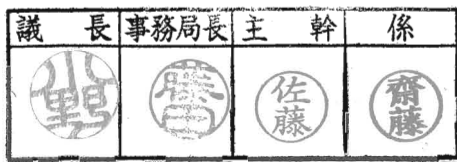 議長 事務局長 主幹 係
小野 佐藤 齋藤